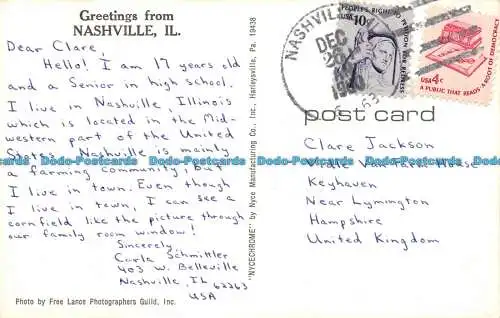 Greetings from
NASHVILLE, IL.
Dear Clare,
Hello! I am 17 years old
and a Senior in high school.
I live in Nashville, Illinois
which is located in the Mid-
western part of the United
States. Nashville is mainly
a farming community, but
I live in town. Even though
I live in town, I can see a
cornfield like the picture through
our family room window!
Sincerely,
Carla Schmittler
403 W. Belleville
Nashville, IL 62263
USA
Photo by Free Lance Photographers Guild, Inc.
"NYCECHROME" by Nyce Manufacturing Co., Inc., Harleysville, Pa. 19438
NASHVILLE
DEC
PEOPLE'S RIGHT TO PETITION FOR REDRESS
USA 10c
USA 4c
A PUBLIC THAT READS A ROOT OF DEMOCRACY
post card
Clare Jackson
House
Keyhaven
Near Lymington
Hampshire
United Kingdom
www.bidStart.com Postcards